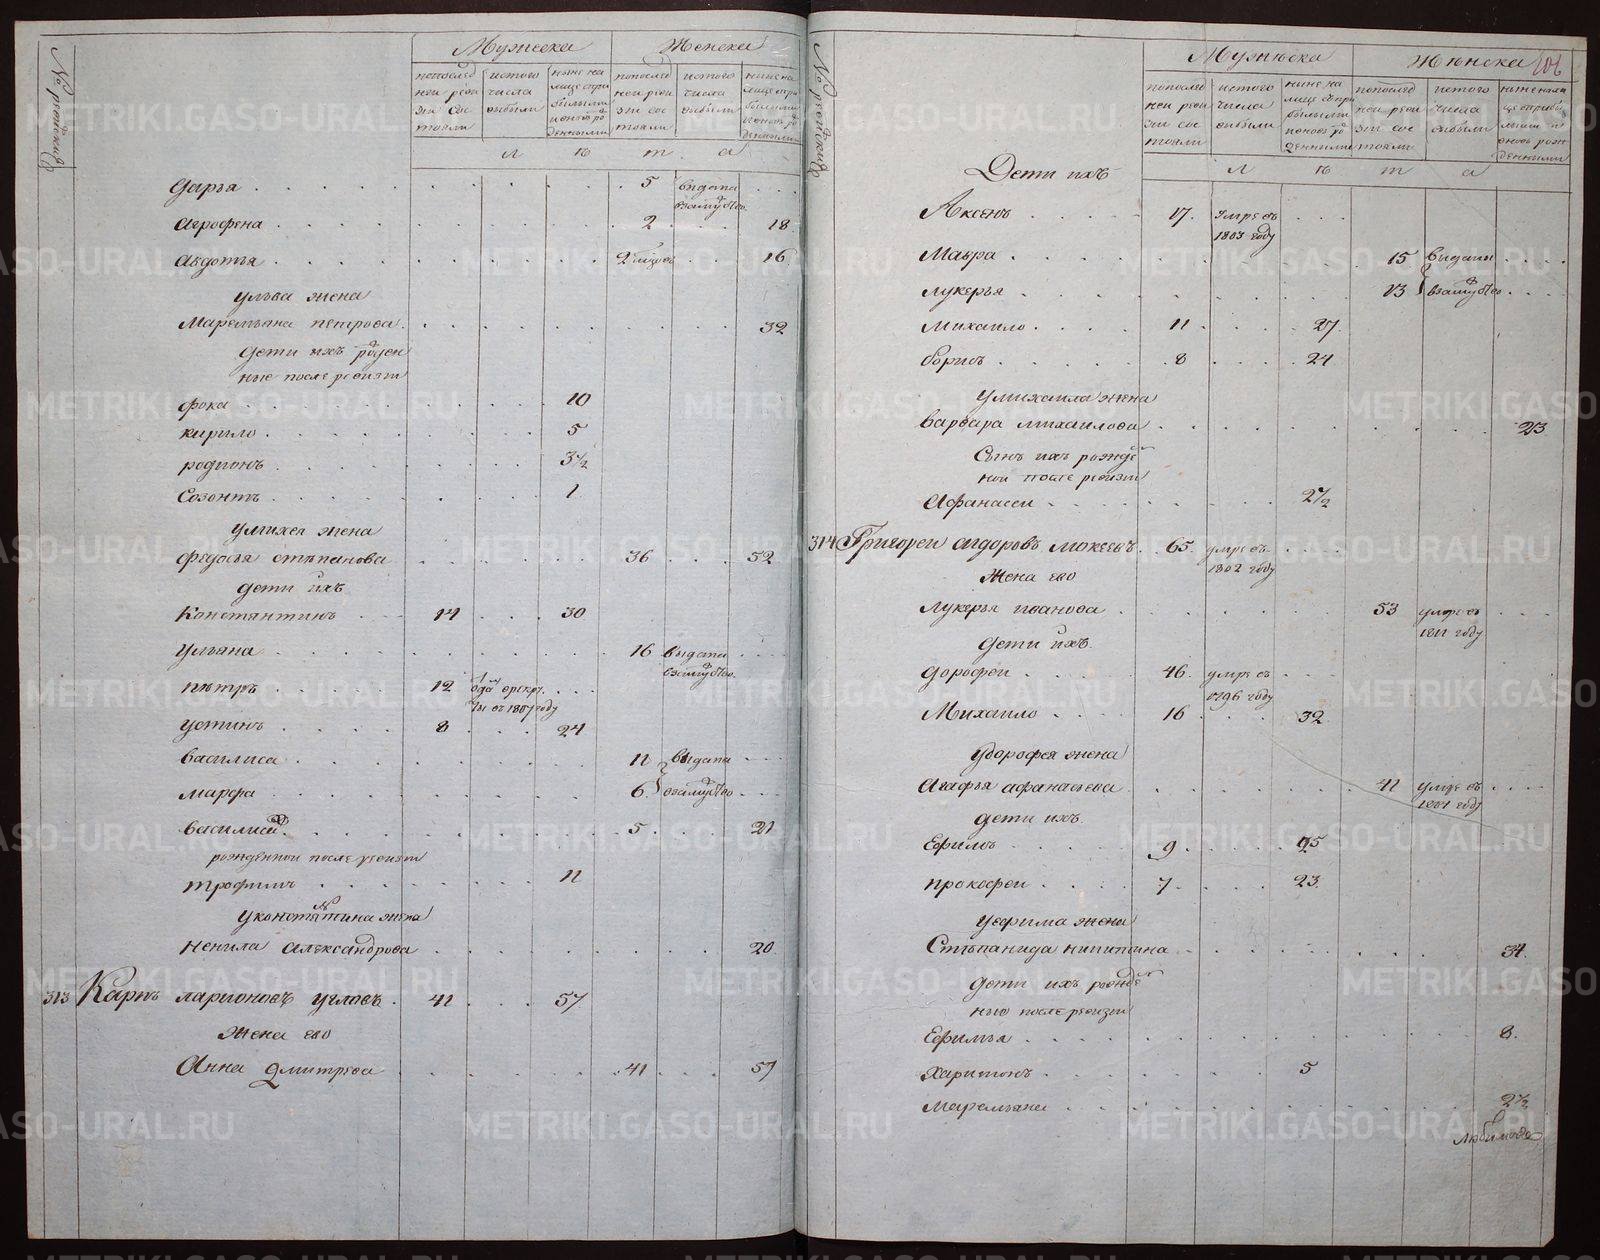 № ревижкиѣ
Мужеска Женска
попослед ней реви зïи сос тояли
истого числа выбыли
ныне на лице спри былыми и вновь ро денными
попослед ней реви зïи сос тояли
истого числа выбыли
ныне на лице спри былыми и вновь ро денными
л ѣ т а
Дарья 5 выдана взамужство
Агрофена 2 18
Авдотья 16
у Льва жена
Маремьяна петрова 32
дети ихъ рожден
ные после ревизïи
фока 10
кирило 5
родионъ 3 1/2
Созонтъ 1
умихея жена
федосья степанова 36 52
дети ихъ
Константинъ 14 30
Ульяна 16 выдана взамужство
петръ 12 одан врекру ты въ 1807 году
устинъ 8 24
василиса 11 выдана
марфа 6 взамужство
василиса 5 21
рожденной после ревизïи
трофимъ 11
уконстантина жена
ненила александрова 20
313 Карпъ ларионовъ угловъ 41 57
Жена ево
Анна Дмитрева 41 57
№ ревижкиѣ
Мужеска Женска 206
попослед ней реви зïи сос тояли
истого числа выбыли
ныне на лице спри былыми и вновь ро денными
попослед ней реви зïи сос тояли
истого числа выбыли
ныне нали це сприбы лыми и вновь рож денными
л ѣ т а
Дети ихъ
Аксенъ 17 Умре въ 1803 году
Мавра 15 выданы
лукерья 13 взамужство
михаило 11 27
борисъ 8 24
умихаила жена
варвара михаилова 23
Сынъ ихъ рожде
ной после ревизïи
Афанасеи 2 1/2
314 Григореи сидоровъ мокеевъ 65 умре въ 1802 году
Жена ево
лукерья иванова 53 умре въ 1811 году
дети ихъ
дорофеи 46 умре въ 1796 году
Михаило 16 32
Удорофея жена
Агафья афанасьева 41 умре въ 1801 году
дети ихъ
Ефимъ 9 25
прокофеи 7 23
уефима жена
Степанида никитина 34
дети ихъ рожде
ные после ревизïи
Ефимья 8
харитонъ 5
маремьяна 2 1/2
METRIKI.GASO-URAL.RU